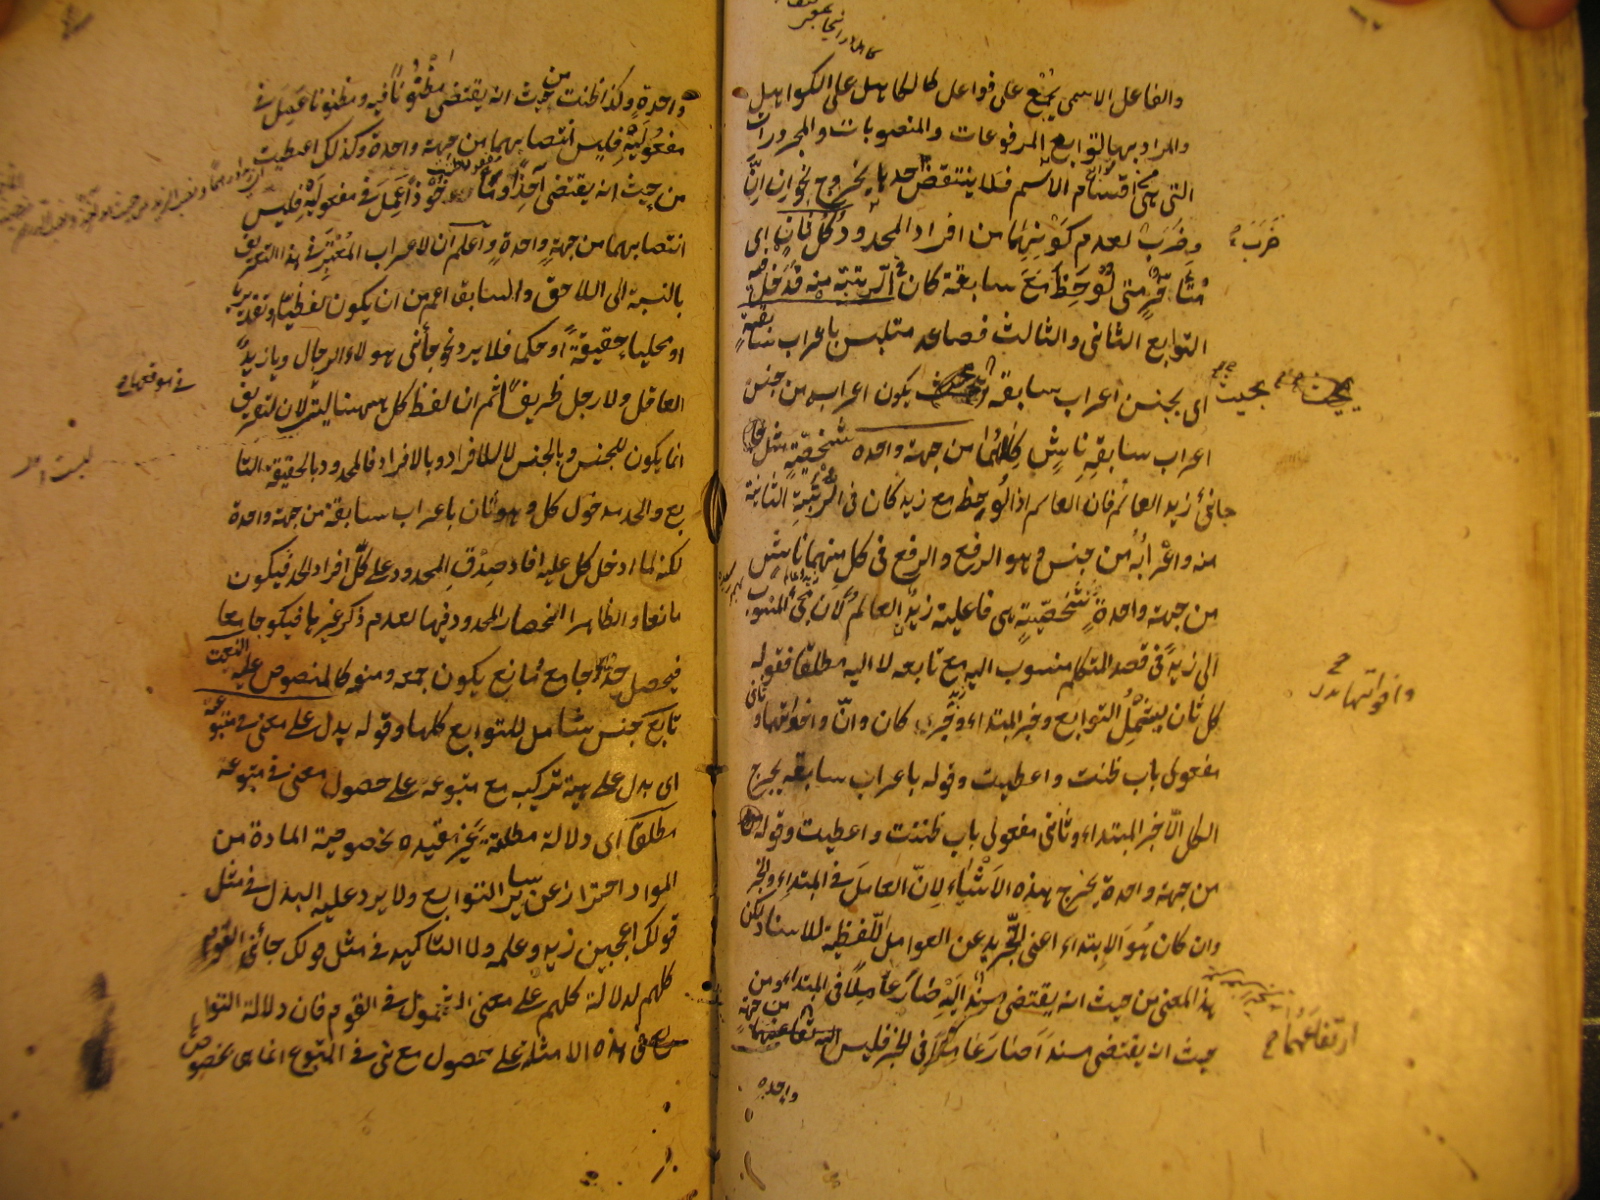 والفاعل الاسمى يجمع على فواعل كالكاهل على الكواهل
والمراد بها توابع المرفوعات والمنصوبات والمجرورات
التى هى من اقسام الاسم فلا ينتقض حدها بخروج نحو ان انّ
وضرب ضرب لعدم كونهما من افراد المحدود كل ثان اى
متأخر متى لوحظ مع سابقه كان فى الرتبة منه فدخل فيه
التوابع الثانى والثالث فصاعدا متلبس باعراب سابقه
اى بجنس اعراب سابقه بحيث يكون اعرابه من جنس
اعراب سابقه ناش كلاهما من جهة واحدة شخصية مثل
جائنى زيد العالم فان العالم اذا لوحظ مع زيد كان فى الرتبة الثانية
منه واعرابه من جنس وهو الرفع والرفع فى كل منهما ناش
من جهة واحدة شخصية هى فاعلية زيد العالم لان المجئ المنسوب
الى زيد فى قصد المتكلم منسوب اليه مع تابعه لا اليه مطلقا فقوله
كل ثان يشمل التوابع وخبر المبتداء وخبرى كان وانّ واخواتهما وثانى
مفعولى باب ظننت واعطيت وقوله باعراب سابقه يخرج
الكل الّا خبر المبتداء وثانى مفعولى باب ظننت واعطيت وقوله
من جهة واحدة يخرج هذه الاشياء لانّ العامل فى المبتداء والخبر
وان كان هو الابتداء اعنى التجريد عن العوامل اللفظية للاسناد لكن
هذا المعنى من حيث انه يقتضى مسندا اليه صار عاملا فى المبتداء ومن
حيث انه يقتضى مسندا صار عاملا فى الخبر فليس ارتفاعهما من جهة
واحدة
واحدة وكذا ظننت من حيث انه يقتضى مظنونا فيه ومظنونا عمل فى
مفعوليه فليس انتصابهما من جهة واحدة وكذلك اعطيت
من حيث انه يقتضى آخذا ومأخوذا عمل فى مفعوليه فليس
انتصابهما من جهة واحدة واعلم ان الاعراب المعتبر فى هذا التعريف
بالنسبة الى اللاحق والسابق اعم من ان يكون لفظيا او تقديريا
او محليا حقيقة او حكما فلا يرد نحو جائنى هؤلاء الرجال ويا زيد
العاقل ولا رجل ظريفا ثم ان لفظ كل ههنا ليست لان التعريف
انما يكون للجنس وبالجنس لا للافراد وبالافراد فالمحدود بالحقيقة التا
بع والحد مدخول كل وهو ثان باعراب سابقه من جهة واحدة
لكنه لما ادخل كل عليه افاد صدق المحدود على كل افراد الحد فيكون
مانعا والظاهر انحصار المحدود فيها لعدم ذكر غيرها فيكون جامعا
فيحصل حد جامع مانع يكون جمعه ومنعه كالمنصوص عليه النعت
تابع جنس شامل للتوابع كلها وقوله يدل على معنى فى متبوعه
اى يدل على هيئة تركيبه مع متبوعه على حصول معنى فى متبوعه
مطلقا اى دلالة مطلقة غير مقيدة بخصوصية المادة من
المواد احتراز عن سائر التوابع ولا يرد عليه البدل فى مثل
قولك اعجبنى زيد وعلمه ولا التاكيد فى مثل قولك جائنى القوم
كلهم لدلالة كلهم على معنى الشمول فى القوم فان دلالة التوا
بع فى هذه الامثلة على حصول معنى فى المتبوع انما هى بخصوص
ضرب
بحيث
واخواتهما
ارتفاعهما
فى موقعها
ليست